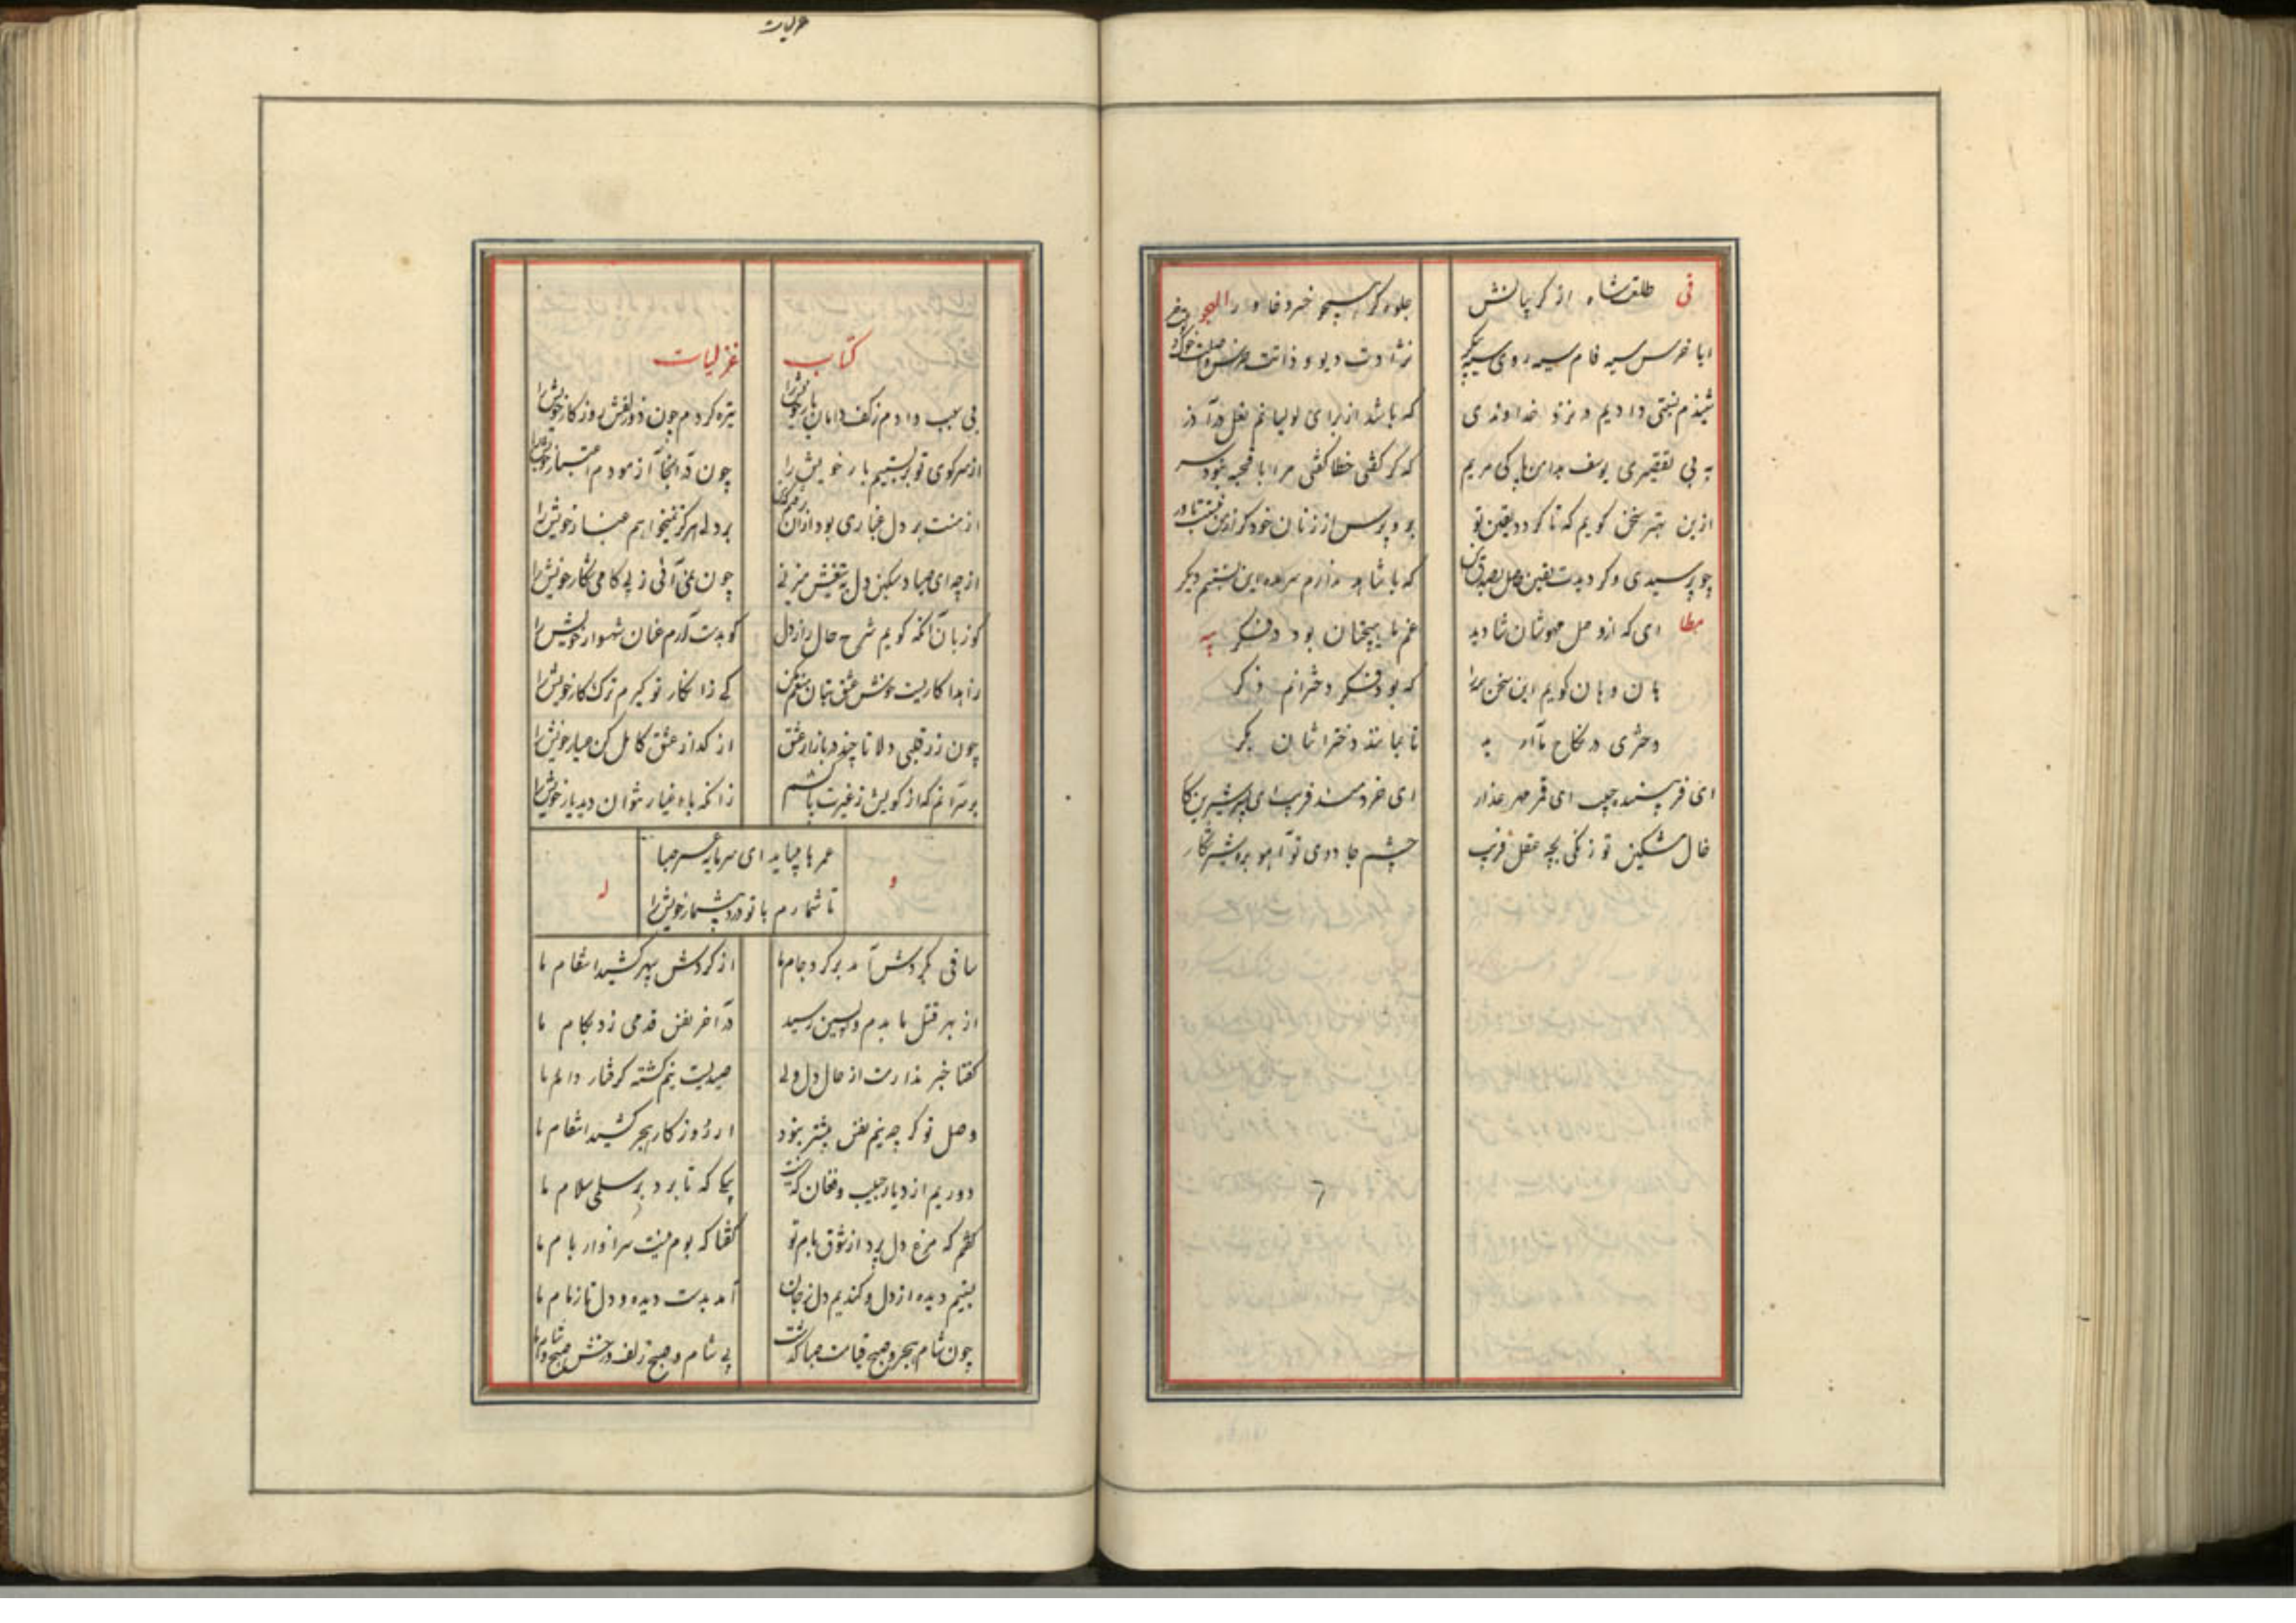 فی طلعت شاه از کریبانش
جلوه گر همچو خسرو خاور الهجو
ایا خرس سیه فام سیه روی سیه پیکر
نژادت دیو و ذاتت خرس و
شنیدم نسبتی دادیم در نزد خداوندی
که باشد از برای لولیانم لعل در آذر
به بی تقصیری یوسف بدامن پاکی مریم
که گر گفتی خطا گفتی مرا با قحبه نبود سر
ازین بهتر سخن گویم که تا گردد یقین تو
برو پرس از زنان خود گر این نیست
چو پرسیدی و گردیدت یقین
که با شاهد ندارم سر ده این نسبتم دیگر
مطا ای که از وصل مهوشان شادید
غم ما بیخنان بود در فکر یبه
هان و هان گویم این سخن بسزا
که بود فکر دخترانم ذکر
دختری در نکاح ما آرید
تا نمانند دختراشان بکر
ای فریبنده چپ ای قمر مهر عذار
ای خردمند فریب ای پسر شیرین کار
خال مشکین تو زنگی بچه عقل فریب
چشم جادوی تو آهو بره شیر شکار
غزلیات
کتاب غزلیات
بی سبب دادم ز کف دامان یار خویش را
تیره کردم چون دو زلفش روز کار خویش را
از سر کوی تو بر بستیم بار خویش را
چون در آنجا آزمودم اعتبار خویش را
از منت بر دل غباری بود از آن
بر دلی هرگز نمیخواهم غبار خویش را
از چه ای صیاد سنگین دل به تیغش میزنی
چون نمی آئی ز پی گاهی شکار خویش را
کو زبان آنکه گویم شرح حال راز دل
کو بدست آرم عنان شهسوار خویش را
زاهدا کاریست خوش عشق بتان منعم مکن
کی ز انکار تو گیرم ترک کار خویش را
چون زر قلبی دلا تا چند در بازار عشق
از گداز عشق کامل کن عیار خویش را
بر سر آنم که از کویش ز غیرت پا کشم
زانکه با اغیار نتوان دید یار خویش را
عمرها میباید ای سرمایه عمر صبا
تا شمارم با تو درد بیشمار خویش را
و له
ساقی بگردش آمد و پر کرد جام ما
از گردش سپهر کشید انتقام ما
از بهر قتل ما بدم واپسین رسید
در آخر نفس قدمی زد بکام ما
گفتا خبر ندارمت از حال دل ولی
صیدیست نیم کشته گرفتار دام ما
وصل تو گر چه نیم نفس بیشتر نبود
از روزگار هجر کشید انتقام ما
دوریم از دیار حبیب و فغان که نیست
پیکی که تا برد بر سلمی سلام ما
گفتم که مرغ دل پرد از شوق بام تو
گفتا که بوم نیست سزاوار بام ما
بستیم دیده از دل و کندیم دل ز جان
آمد بدست دیده و دل تا زمام ما
چون شام هجر و صبح قیامت صبا گذشت
بی شام و صبح زلف و رخش صبح و شام ما